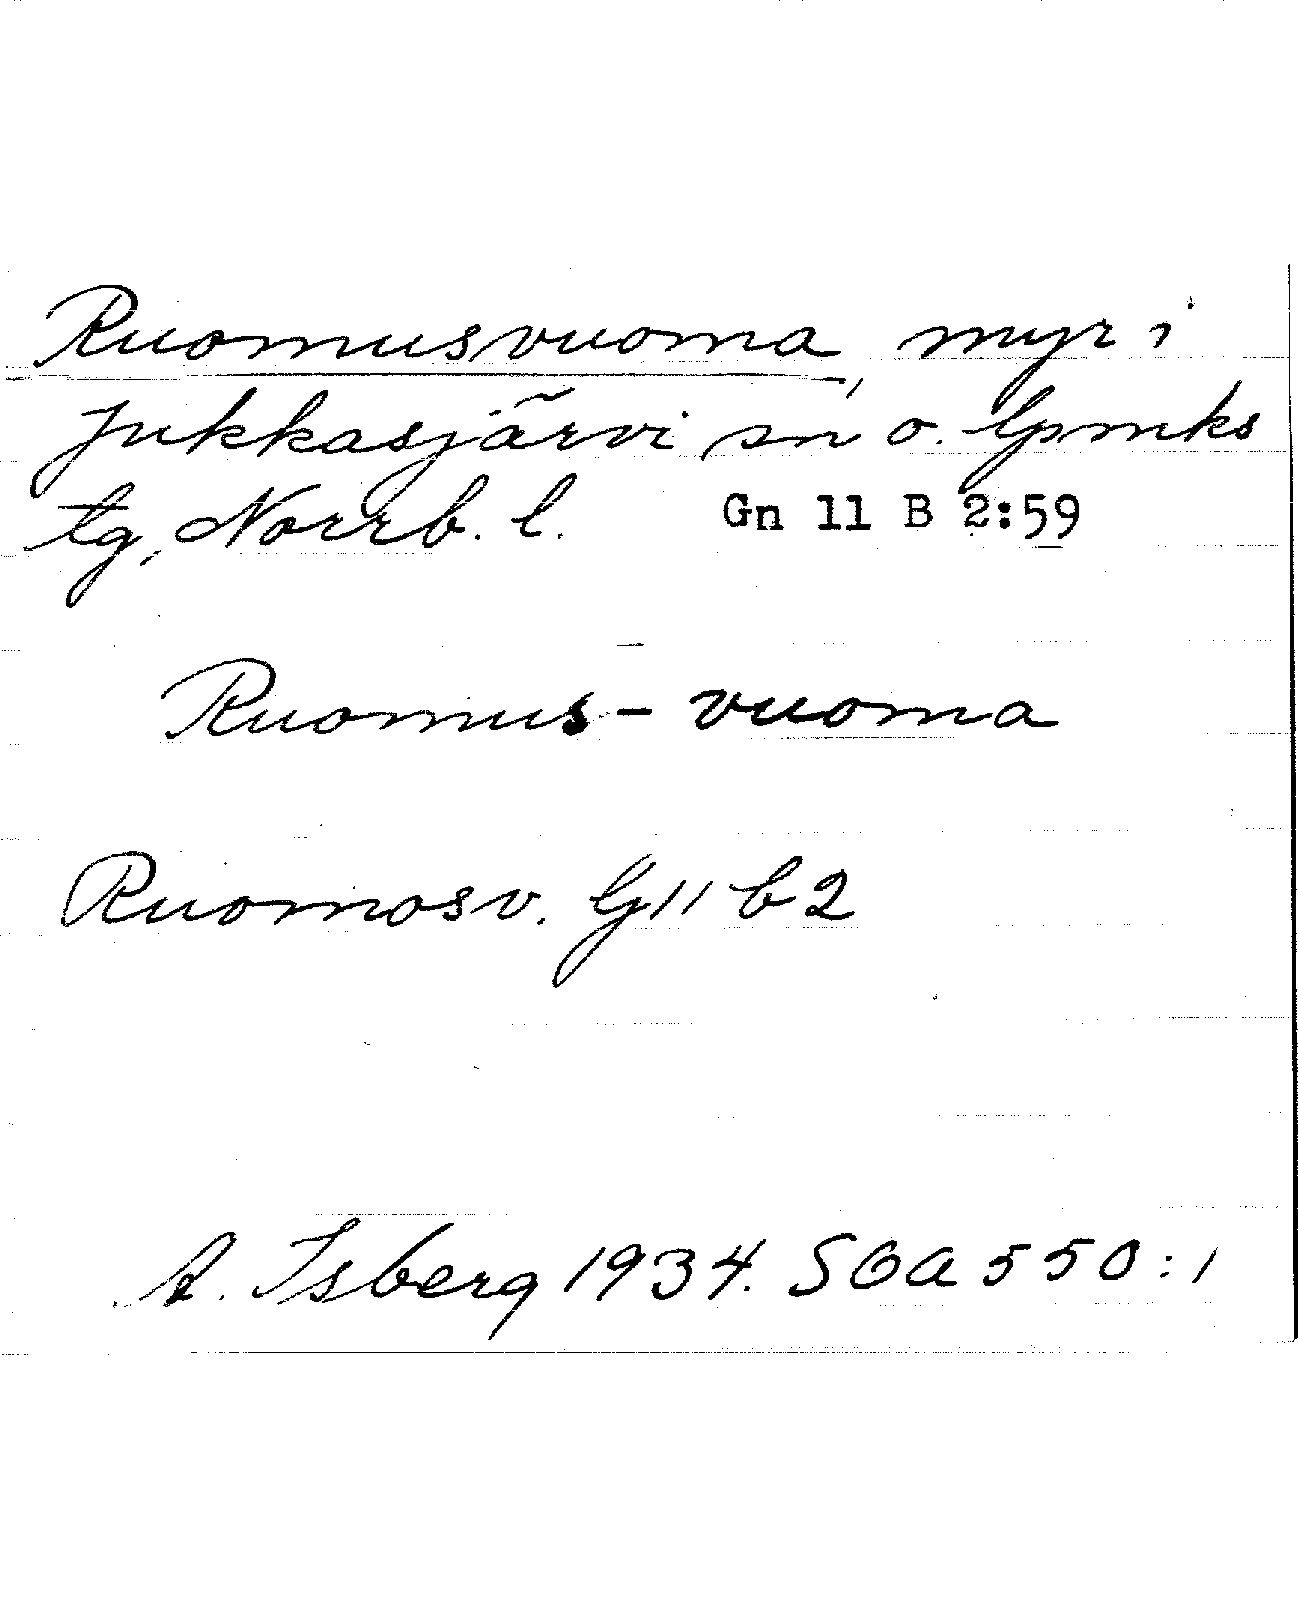 Ruomusvuoma, myr i
Jukkasjärvi sn o. lpmks
tg, Norrb. l. Gn 11 B 2:59
Ruomus - vuoma
Ruomosv. G 11 b 2
A. Isberg 1934. SOA 550:1